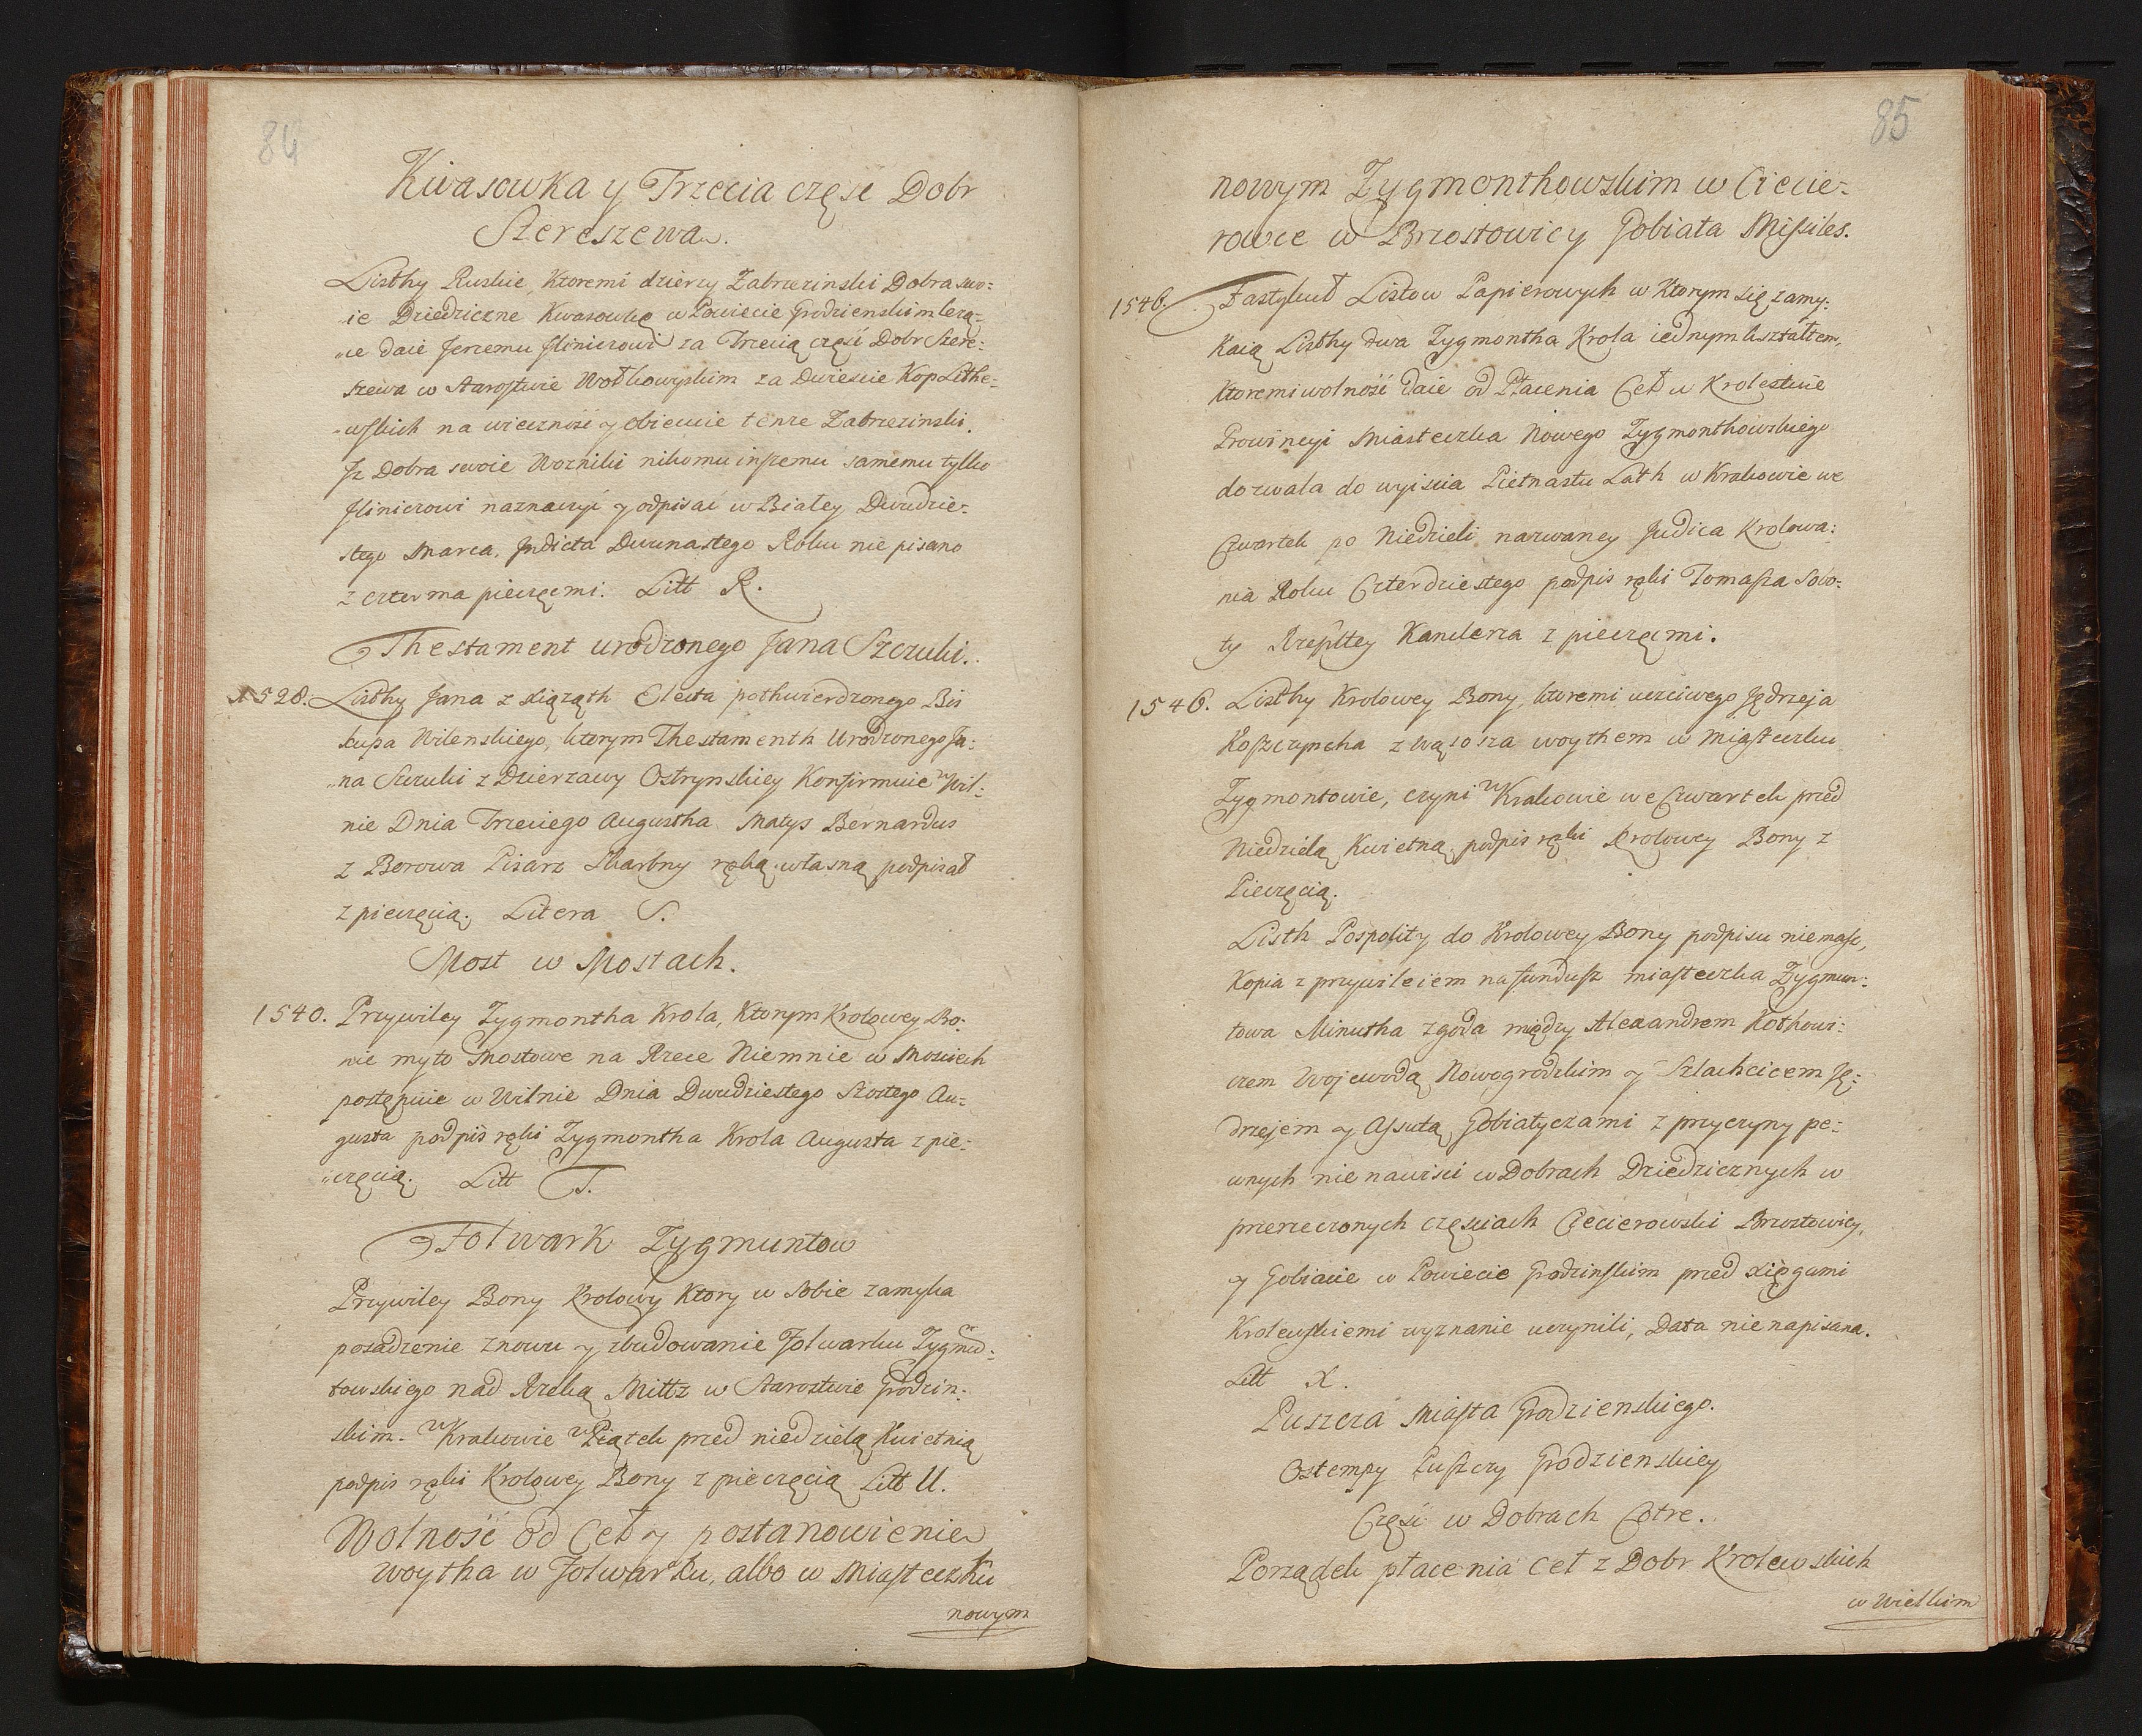 84
Kwasowka y Trzecia częsc Dobr
Szereszewa.
Listhy Ruskie, Ktoremi dzierzy Zabrzezinski Dobra swo:
ie Dziedziczne Kwasowkę w Powiecie Grodzienskim lezą:
„ce daie Jerzemu Jlinicrowi za Trzecią częsć Dobr Szere:
szewa w Starostwie Wołkowyskim za Dwiescie Kop Lithe:
„wskich na wieczność y obiecuie tenze Zabrzezinski.
Jz Dobra swoie Wozniki nikomu inszemu samemu tylko
Jlinicrowi naznaczyć y odpisać w Białey Dwudzie:
stego Marca, Jndicta Dwunastego Roku nie pisano
z czterma pieczęcmi. Litt R.
Thestament urodzonego Jana Szczuki.
1528. Listhy Jana z Xiąząth Electa pothwierdzonego Bis
kupa Wilenskiego, ktorym Thestamenth Urodzonego Ja:
„na Szczuki z Dzierzawy Ostrynskiey Konfirmuie w Wil:
nie Dnia Trzeciego Augustha Matys Bernardus
z Borowa Pisarz Skarbny ręką własną podpisał
z pieczęcią. Litera S.
Most w Mostach.
1540. Przywiley Zygmontha Krola, Ktorym Krolowey Bo:
nie myto Mostowe na Rzece Niemnie w Mosciech
postępuie w Wilnie Dnia Dwudziestego Szostego Au:
gusta podpis ręki Zygmontha Krola Augusta z pie:
„częcią. Litt T.
Folwark Zygmuntow
Przywiley Bony Krolowy Ktory w sobie zamyka
posadzenie znowu y zbudowanie Folwarku Zygmū:
towskiego nad Rzeką Mittz w Starostwie Grodzin:
skim. w Krakowie w Piątek przed niedzielą Kwietnią
podpis ręki Krolowey Bony z pieczęcią Litt U.
Wolność od Ceł y postanowienie
woytha w Folwarku, albo w Miasteczku
nowym
85
nowym Zygmonthowskim w Ciecie:
rowce w Brzostowicy Gobiata Missiles.
1546. Fastykuł Listow Papierowych w Ktorym się zamy:
kaią Listhy dwa Zygmontha Krola iednym ksztaltem,
Ktoremi wolność daie od Płacenia Ceł w Krolestwie
Prowincyi Miasteczka Nowego Zygmonthowskiego
dozwala do wyiscia Pietnastu Lath w Krakowie we
Czwartek po Niedzieli nazwaney Judica Krolowa:
nia Roku Czterdziestego podpis ręki Tomasza Sobo:
ty Rzepltey Kanclerza z pieczęcmi.
1546. Listhy Krolowey Bony, ktoremi uczciwego Jędrzeja
Koszczyncha z Wąsosza woythem w Miasteczku
Zygmontowie, czyni w Krakowie we Czwartek przed
Niedzielą Kwietną podpis ręki Krolowey Bony z
Pieczęcią.
Listh Pospolity do Krolowey Bony podpisu niemasz,
Kopia z przywileiem na fundusz miasteczka Zygmun:
towa Minutha zgoda między Alexandrem Kothowi:
czem Wojewodą Nowogrodzkim y Szlachcicem Ję:
drzejem y Assutą Gobiatyczami z przyczyny pe:
wnych nienawisci w Dobrach Dziedzicznych w
przerzeczonych częsciach Ciecierowski Brzostowicy,
y Gobiacie w Powiecie Grodzinskim przed xięgami
Krolewskiemi wyznanie uczynili, Data nienapisana.
Litt X.
Puszcza Miasta Grodzienskiego.
Ostempy Puszczy Grodzienskiey
Częsć w Dobrach Cotre.
Porządek płacenia Ceł z Dobr Krolewskich
w Wielkim